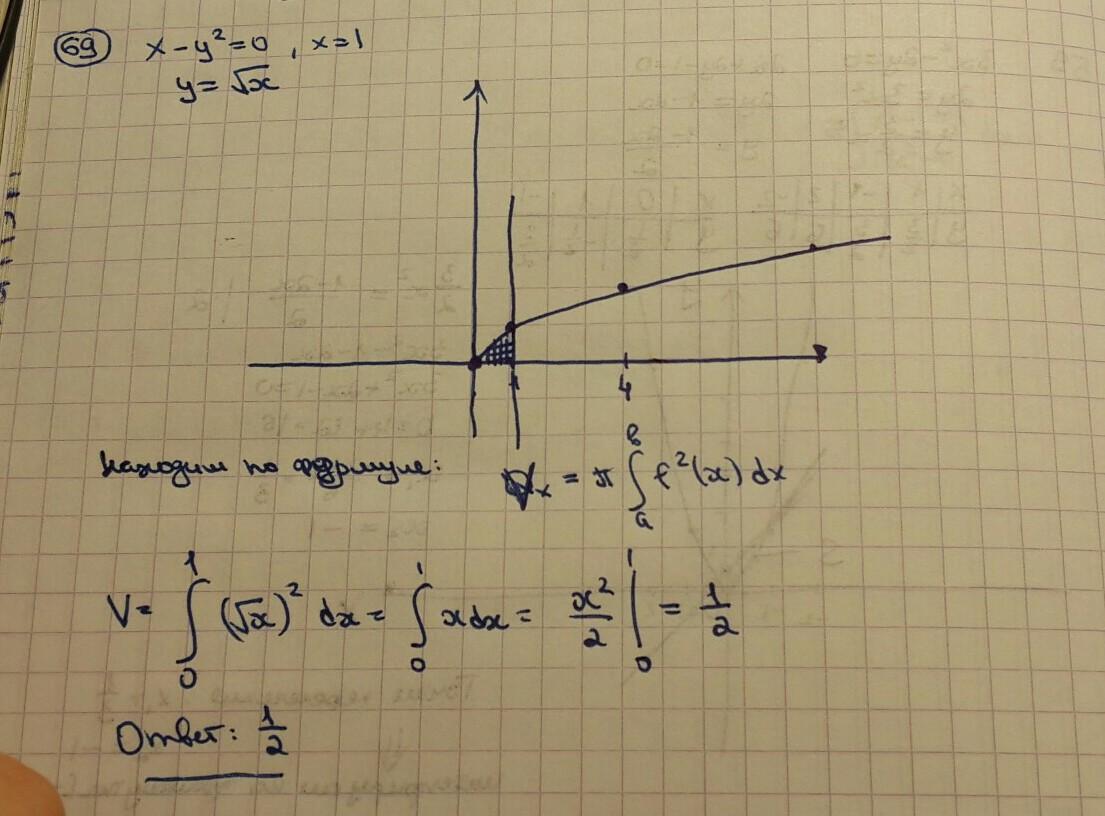 69 x - y² = 0 , x = 1
y = √x
1 4
находим по формуле: Vₓ = π ∫ₐᵇ f²(x) dx
V = ∫₀¹ (√x)² dx = ∫₀¹ x dx = x²/2 |₀¹ = 1/2
Ответ: 1/2